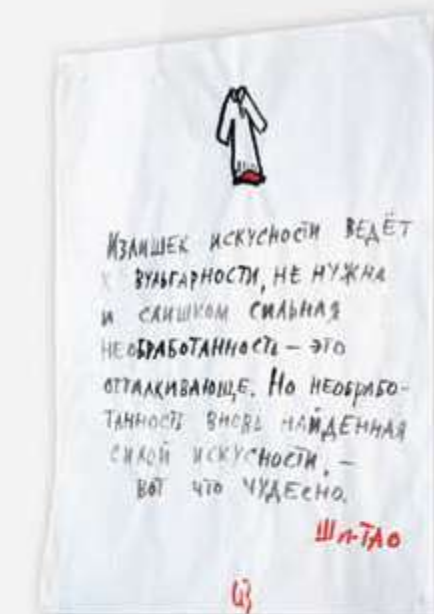 ИЗЛИШЕК ИСКУСНОСТИ ВЕДЁТ
К ВУЛЬГАРНОСТИ, НЕ НУЖНА
И СЛИШКОМ СИЛЬНАЯ
НЕОБРАБОТАННОСТЬ – ЭТО
ОТТАЛКИВАЮЩЕ. НО НЕОБРАБО-
ТАННОСТЬ ВНОВЬ НАЙДЕННАЯ
СИЛОЙ ИСКУСНОСТИ, –
ВОТ ЧТО ЧУДЕСНО.
ШИ-ТАО